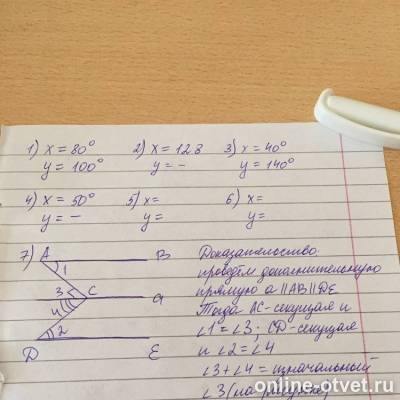 1) x = 80° 2) x = 123 3) x = 40°
y = 100° y = – y = 140°
4) x = 50° 5) x = 6) x=
y = – y = y =
7) A B
1
3 C a
4
2
D E
Доказательство:
проведём дополнительную
прямую a || AB || DE
Тогда AC-секущая и
∠1 = ∠3; CD-секущая
и ∠2 = ∠4
∠3 + ∠4 = изначальный
∠3 (на рисунке)
online-otvet.ru